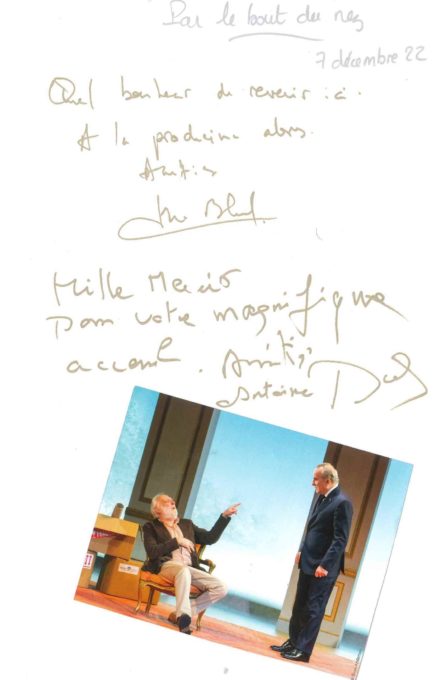 Par le bout du nez
7 décembre 22
Quel bonheur de revenir ici.
A la prochaine alors.
Amitiés
Mille Mercis
pour votre magnifique
accueil. Amitiés
Antoine